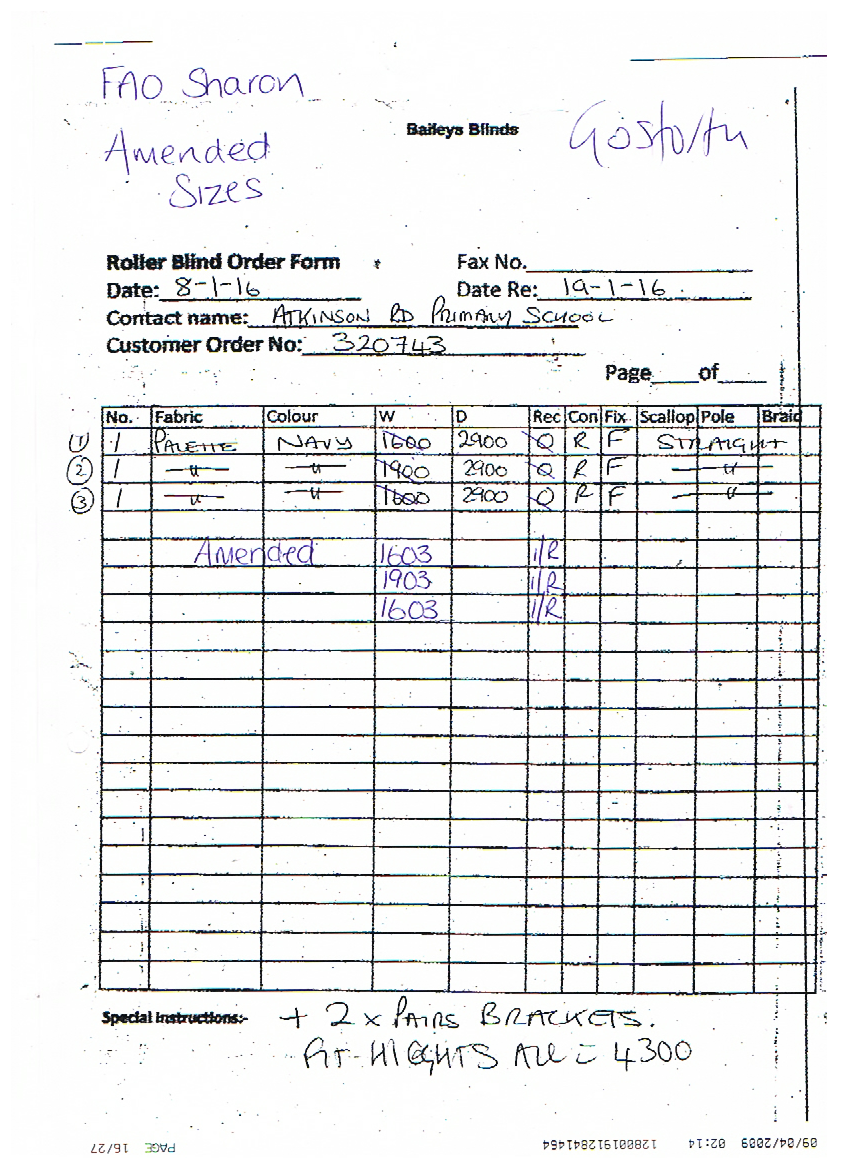 FAO Sharon
Baileys Blinds
Gosforth
Amended
Sizes
Roller Blind Order Form Fax No.
Date: 8-1-16 Date Re: 19-1-16
Contact name: ATKINSON RD PRIMARY SCHOOL
Customer Order No: 320743
Page of
No. Fabric Colour W D Rec Con Fix Scallop Pole Braid
(1) 1 PALETTE NAVY 1600 2900 O R F STRAIGHT
(2) 1 —"— —"— 1900 2900 O R F —"—
(3) 1 —"— —"— 1600 2900 O R F —"—
Amended 1603 I/R
1903 I/R
1603 I/R
Special Instructions:- + 2 x PAIRS BRACKETS.
FIT-HIGHTS ALL = 4300
09/04/2009 02:14 128001912841464 PAGE 16/27